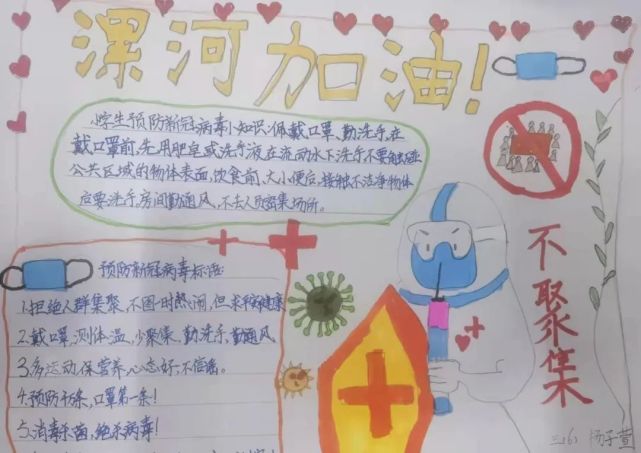 漯河加油!
小学生预防新冠病毒小知识:佩戴口罩,勤洗手,在
戴口罩前,先用肥皂或洗手液在流动水下洗手不要触碰
公共区域的物体表面,饮食前、大小便后,接触不洁净物体
后要洗手,房间勤通风,不去人员密集场所。
预防新冠病毒标语:
1.拒绝人群集聚,不图一时热闹,但求永久健康
2.戴口罩,测体温,少聚集,勤洗手,勤通风
3.多运动保营养,心态好,不信谣。
4.预防千条,口罩第一条!
5.消毒杀菌,绝杀病毒!
不聚集
三(6) 杨子萱